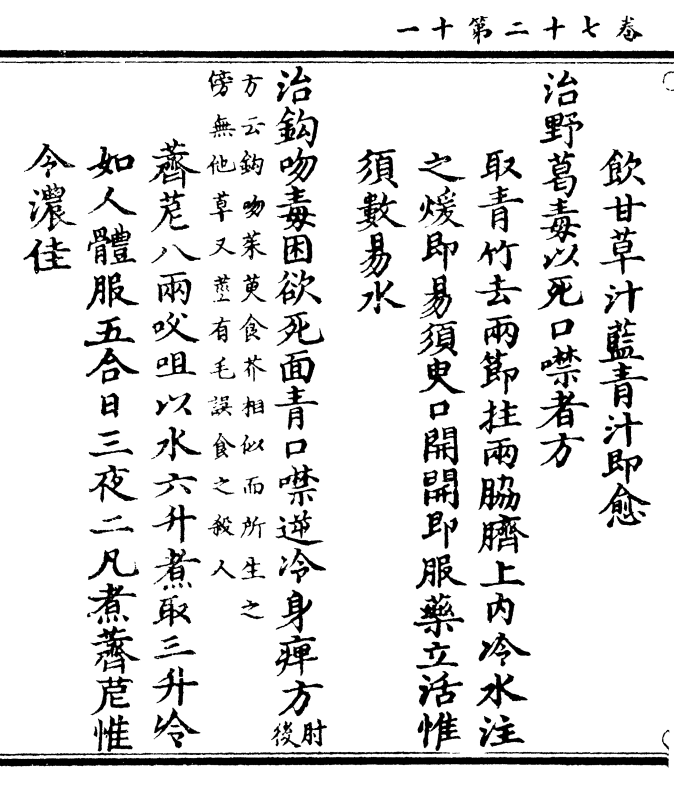 卷七十二第十一
飲甘草汁藍青汁即愈
治野葛毒以死口噤者方
取青竹去兩節拄兩脇臍上內冷水注
之煖即易須臾口開開即服藥立活惟
須數易水
治鈎吻毒困欲死面青口噤逆冷身痺方肘後
方云鈎吻茱萸食芥相似而所生之
傍無他草又莖有毛誤食之殺人
薺苨八兩㕮咀以水六升煮取三升冷
如人體服五合日三夜二凡煮薺苨惟
令濃佳